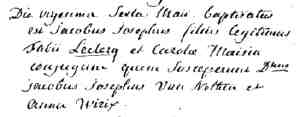 Die vigesima Sexta Maii Baptisatus
est Jacobus Josephus filius legitimus
Fabii Leclercq et Carolæ Maisin
conjugum quem Susceperunt Dnus
jacobus josephus Van Nothen et
anna Wirix